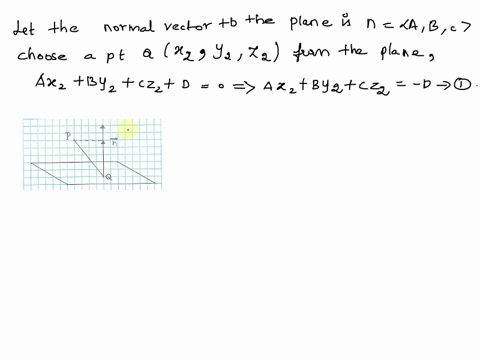 Let the normal vector to the plane is n = <A, B, C>
choose a pt Q (x₂, y₂, z₂) from the plane,
Ax₂ + By₂ + Cz₂ + D = 0 => Ax₂ + By₂ + Cz₂ = -D → ①.
P n⃗
Q